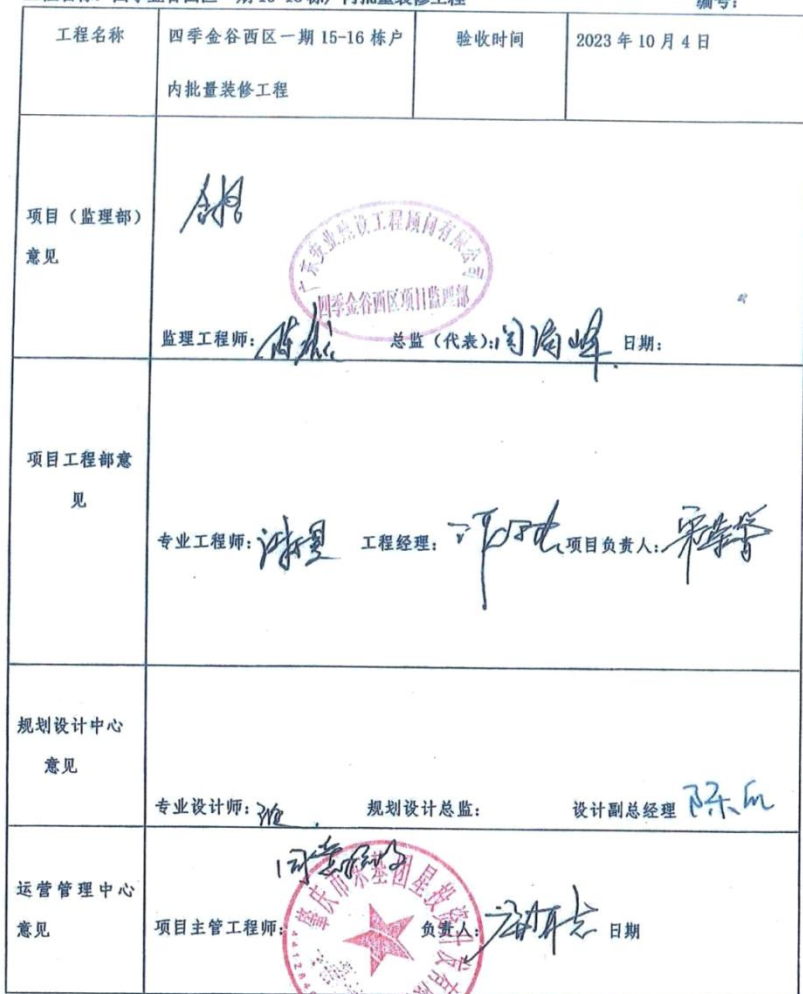 编号：
工程名称
四季金谷西区一期 15-16 栋户
内批量装修工程
验收时间
2023 年 10 月 4 日
项目（监理部）
意见
合格
广东实业建设工程顾问有限公司
四季金谷西区项目监理部
监理工程师：
总监（代表）：
日期：
项目工程部意
见
专业工程师：
工程经理：
项目负责人：
规划设计中心
意见
专业设计师：
规划设计总监：
设计副总经理
运营管理中心
意见
同意验收
项目主管工程师：
负责人：
日期